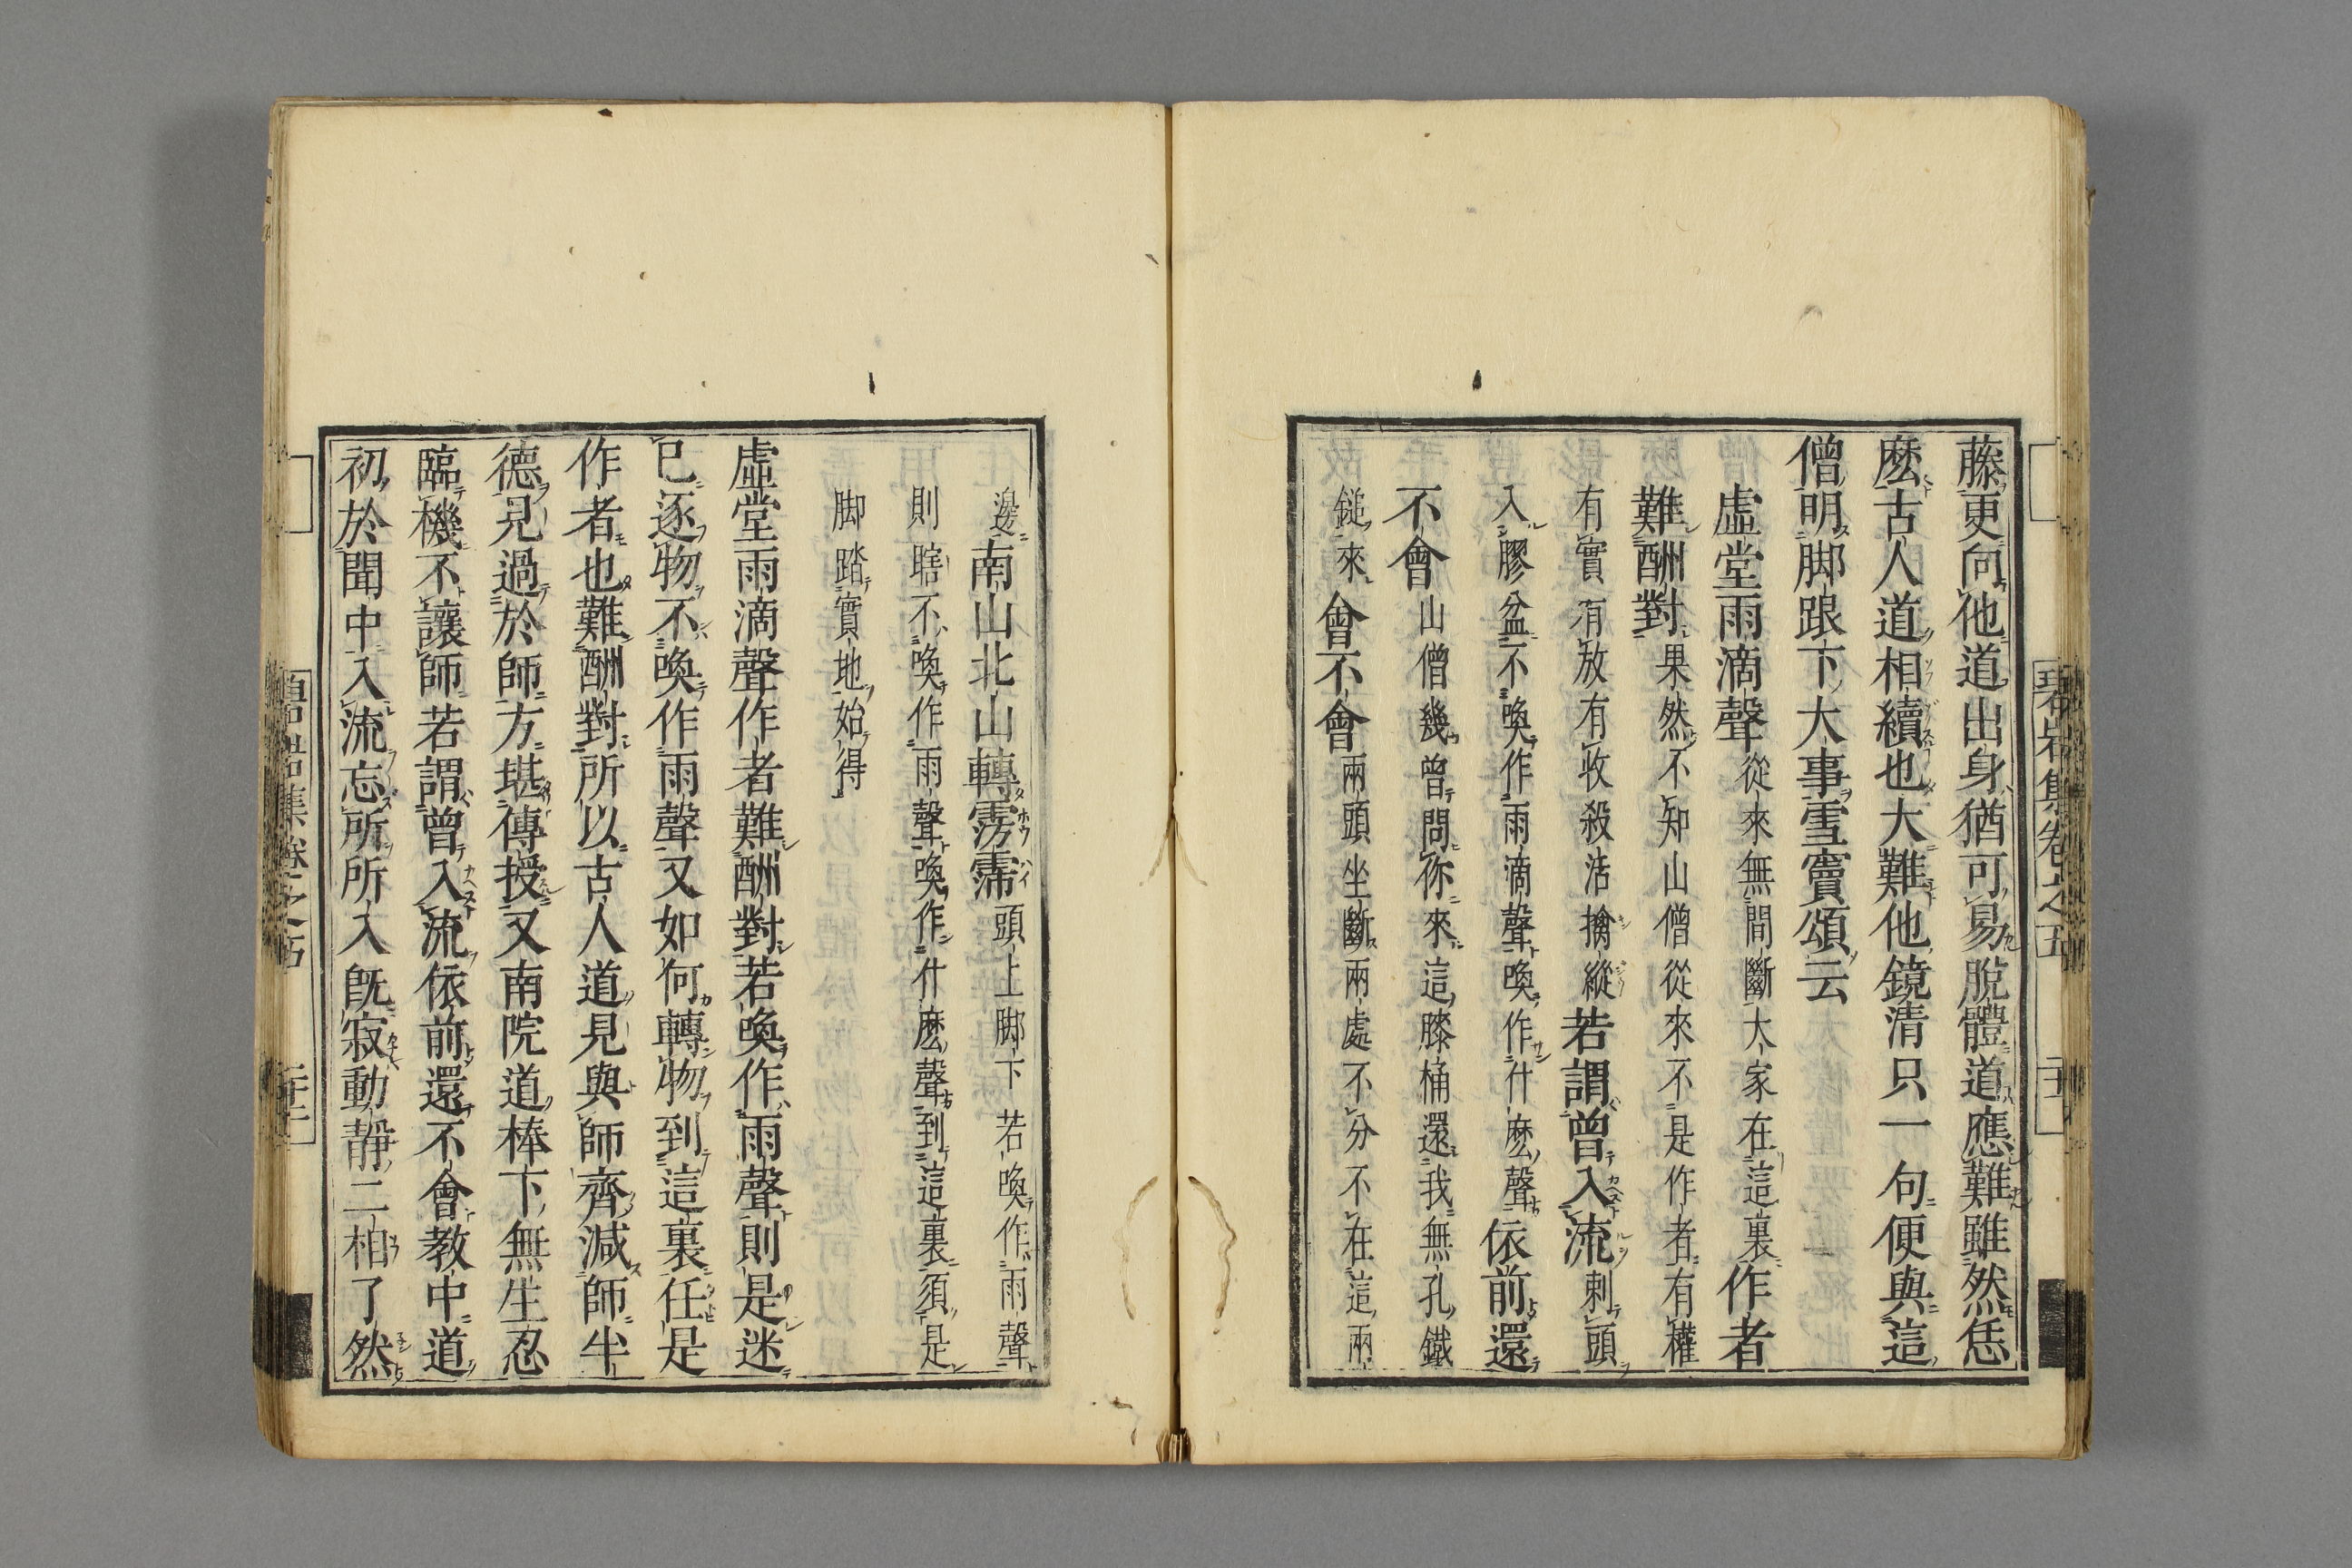 藤更向他道出身猶可易脫體道應難雖然恁
麽古人道相續也大難他鏡清只一句便與這
僧明脚跟下大事雪竇頌云
虛堂雨滴聲從來無間斷大家在這裏作者
難酬對果然不知山僧從來不是作者有權
有實有放有收殺活擒縱若謂曾入流刺頭
入膠盆不喚作雨滴聲喚作什麽聲依前還
不會山僧幾曾問你來這膝桶還我無孔鐵
鎚來會不會兩頭坐斷兩處不分不在這兩
邊南山北山轉霶霈頭上脚下若喚作雨聲
則瞎不喚作雨聲喚作什麽聲到這裏須是
脚踏實地始得
虛堂雨滴聲作者難酬對若喚作雨聲則是迷
己逐物不喚作雨聲又如何轉物到這裏任是
作者也難酬對所以古人道見與師齊減師半
德見過於師方堪傳授又南院道棒下無生忍
臨機不讓師若謂曾入流依前還不會教中道
初於聞中入流忘所所入既寂動靜二相了然
碧岩集卷之五
碧岩集卷之五